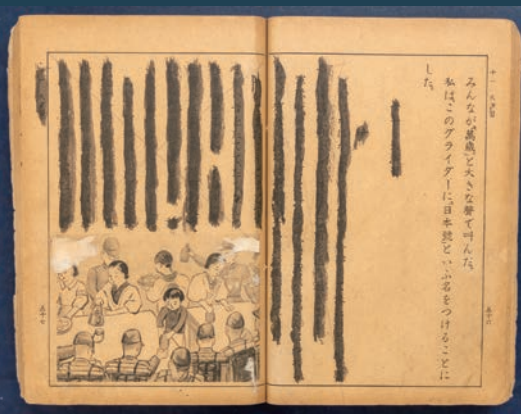 みんなが「萬歳」と大きな聲で叫んだ。
私は、このグライダーに、「日本號」といふ名をつけることに
した。
五十六
五十七